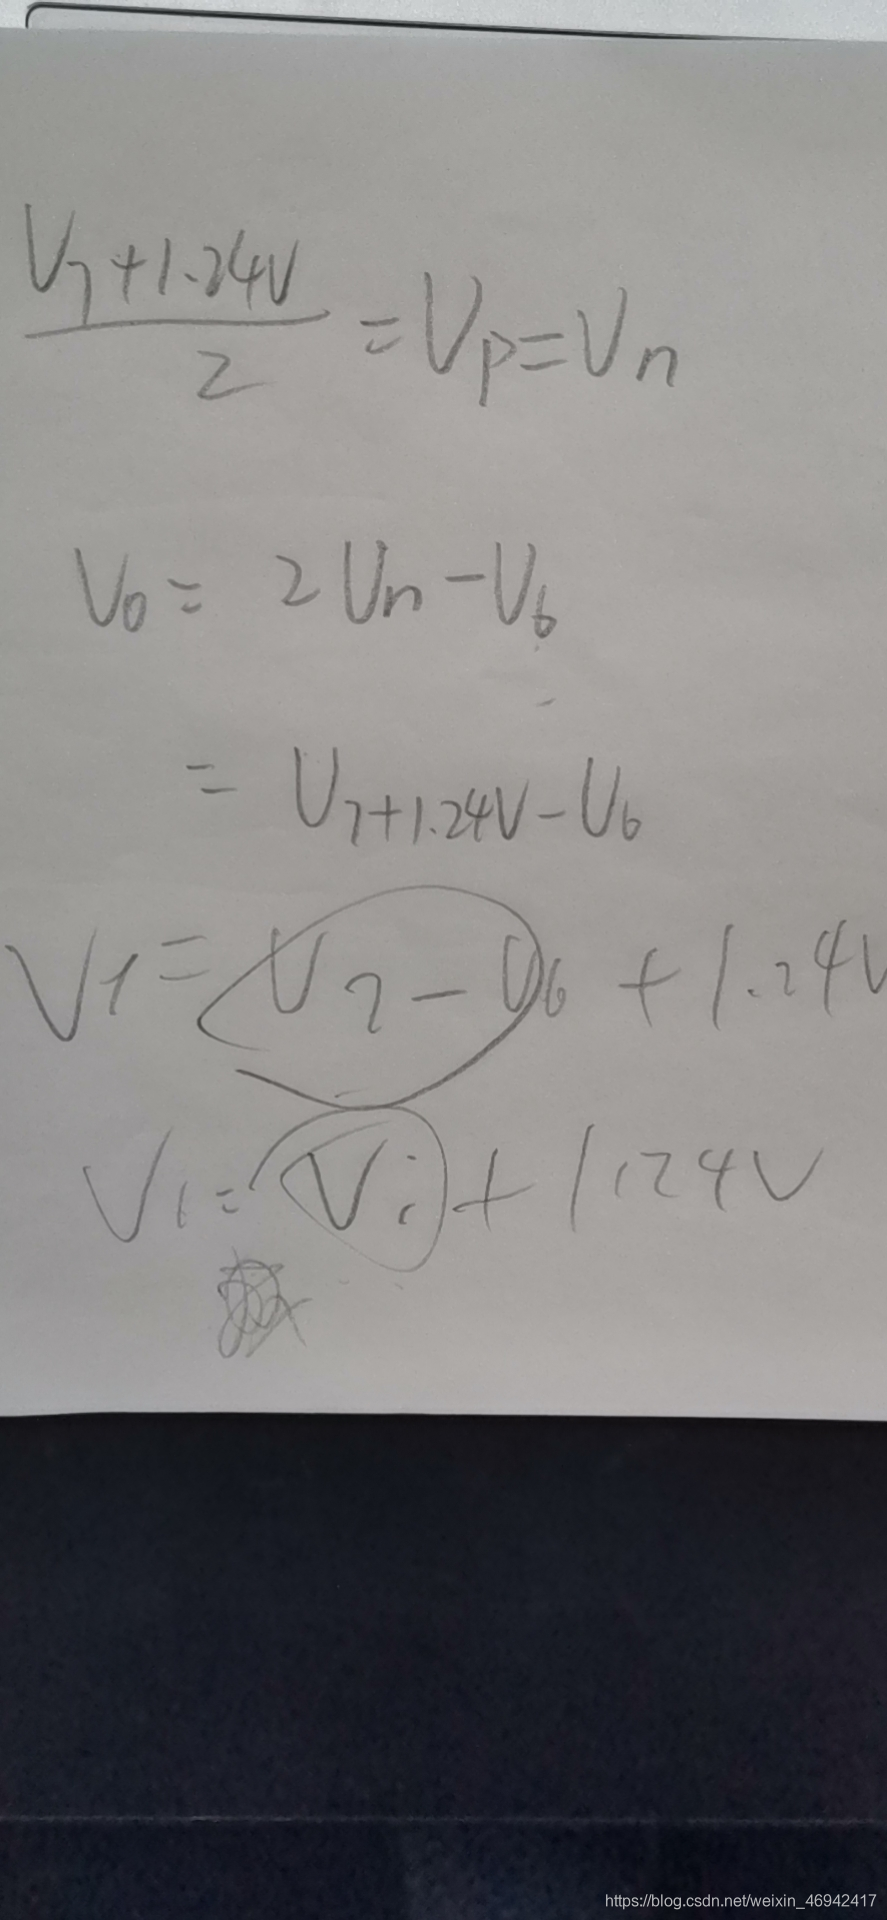 V7+1.24V
2
=Vp=Vn
V0= 2Vn-V6
= V7+1.24V-V6
V1= V7-V6+1.24V
V1=Vi+1.24V
https://blog.csdn.net/weixin_46942417